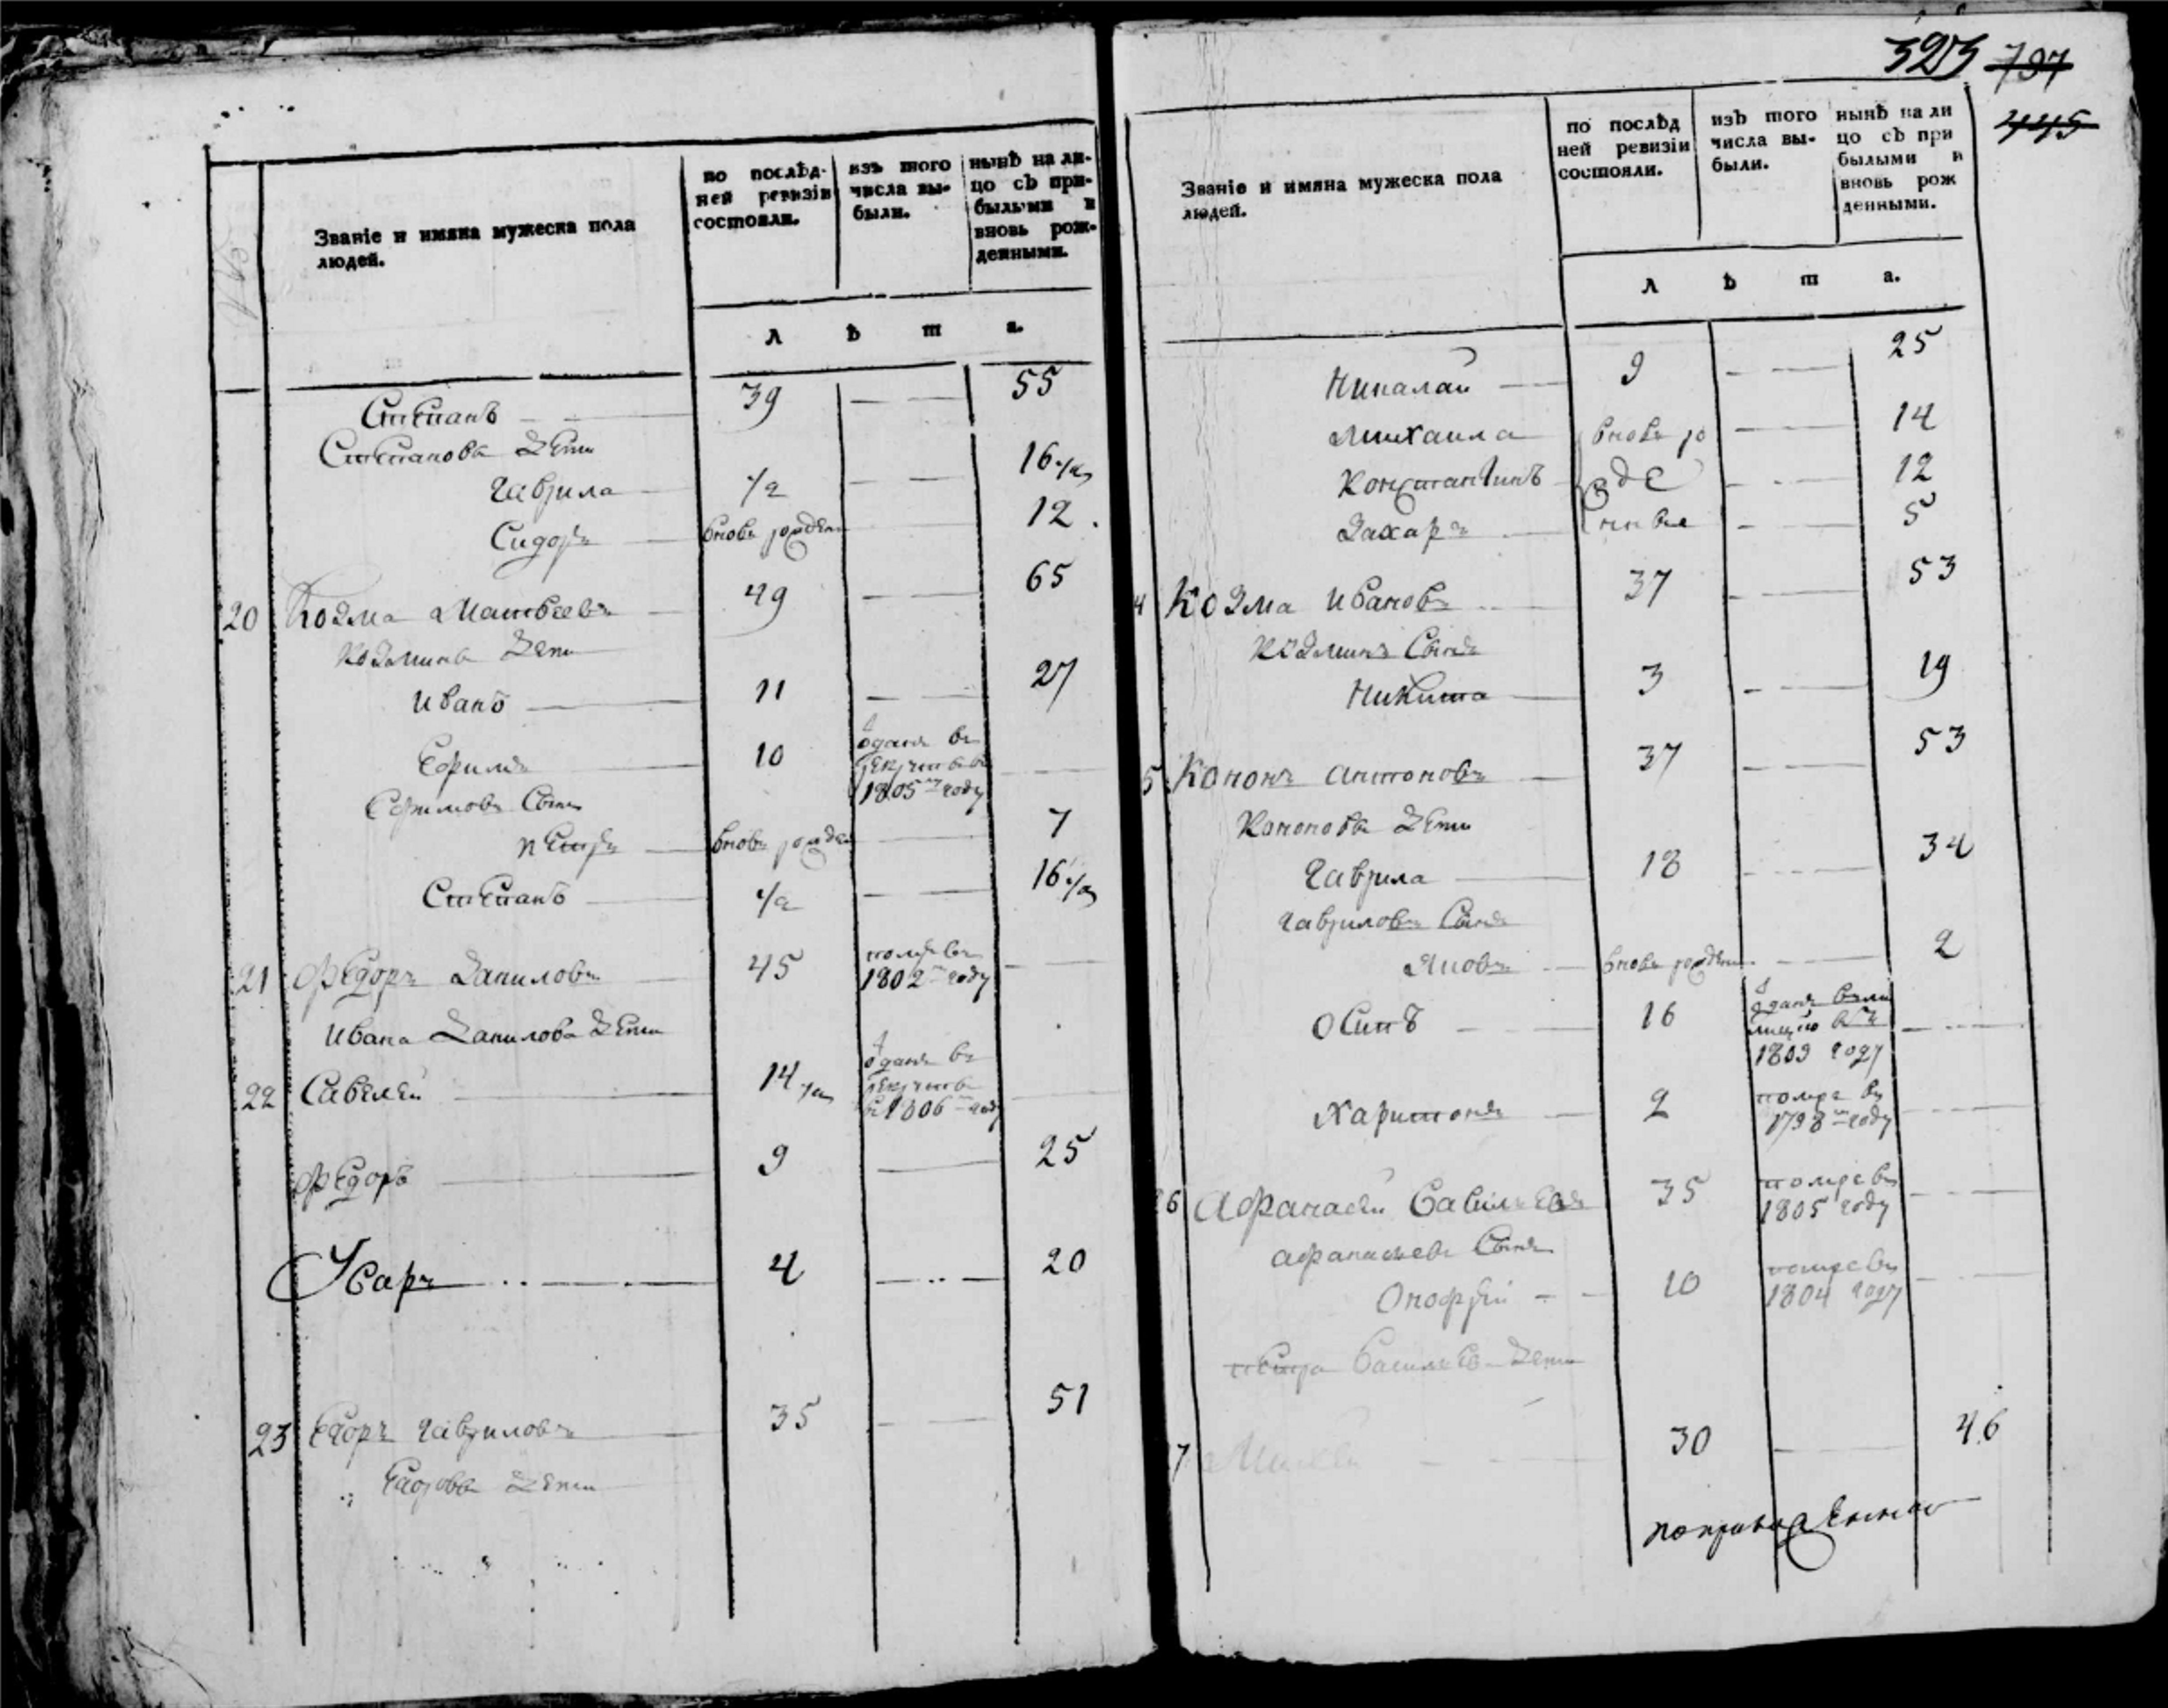 Званіе и имяна мужеска пола
людей.
по послѣд-
ней ревизіи
состояли.
изъ того
числа вы-
были.
нынѣ на ли-
цо съ при-
былыми и
вновь рож-
денными.
л ѣ т а.
Степанъ 39 55
Степановы дети
Гаврила 1/2 16 1/2
Сидоръ вновь рожден 12
20 Козма Матвеевъ 49 65
Козмины дети
Иванъ 11 27
Ефимъ 10 одданъ въ рекруты въ 1805м году
Ефимовъ сынъ
Петръ вновь рожден 7
Степанъ 1/2 16 1/2
21 Федоръ Даниловъ 45 помре въ 1802м году
Ивана Данилова дети
22 Савелей 14 1/2 одданъ въ рекруты в 1806м году
Федоръ 9 25
Уваръ 4 20
23 Егоръ Гавриловъ 35 51
Егоровы дети
323 797
445
Званіе и имяна мужеска пола
людей.
по послѣд
ней ревизіи
состояли.
изъ того
числа вы-
были.
нынѣ на ли
цо съ при
былыми и
вновь рож
денными.
л ѣ т а.
Николай 9 25
Михаила вновь ро 14
Константинъ жде 12
Захаръ нные 5
4 Козма Ивановъ 37 53
Козминъ сынъ
Никита 3 19
5 Кононъ Антоновъ 37 53
Кононовы дети
Гаврила 18 34
Гавриловъ сынъ
Яковъ вновь рожден 2
Осипъ 16 одданъ 1809 году
Харитонъ 2 помре въ 1798м году
6 Афанасей Савельевъ 35 помре въ 1805 году
Афанасьевъ сынъ
Онофрей 10 помре въ 1804 году
Петра Васильева дети
7 30 46